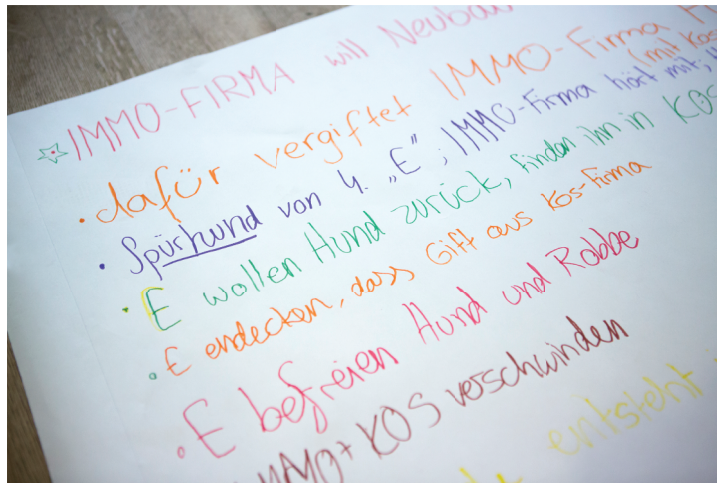 IMMO-FIRMA will Neubau
• dafür vergiftet IMMO-Firma
(mit Kos
• Spürhund von 4. „E"; IMMO-Firma hört mit;
• E wollen Hund zurück, finden ihn in KOS
• E endecken, dass Gift aus Kos-Firma
• E befreien Hund und Robbe
IMMO+KOS verschwinden
entsteht